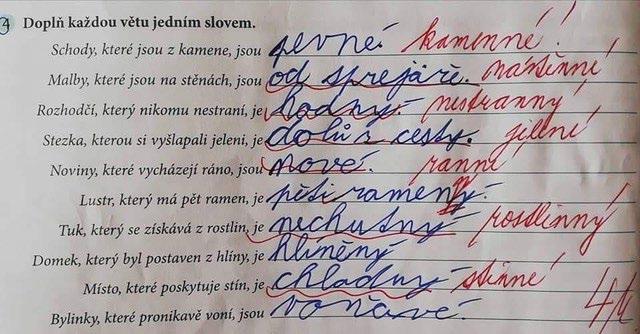 4 Doplň každou větu jedním slovem.
Schody, které jsou z kamene, jsou pevné. kamenné!
Malby, které jsou na stěnách, jsou od sprejáře. nástěnné
Rozhodčí, který nikomu nestraní, je hodný. nestranný
Stezka, kterou si vyšlapali jeleni, je dolů z cesty. jelení
Noviny, které vycházejí ráno, jsou nové. ranní
Lustr, který má pět ramen, je pětiramenný.
Tuk, který se získává z rostlin, je nechutný rostlinný
Domek, který byl postaven z hlíny, je hliněný
Místo, které poskytuje stín, je chladný stinné
Bylinky, které pronikavě voní, jsou voňavé.